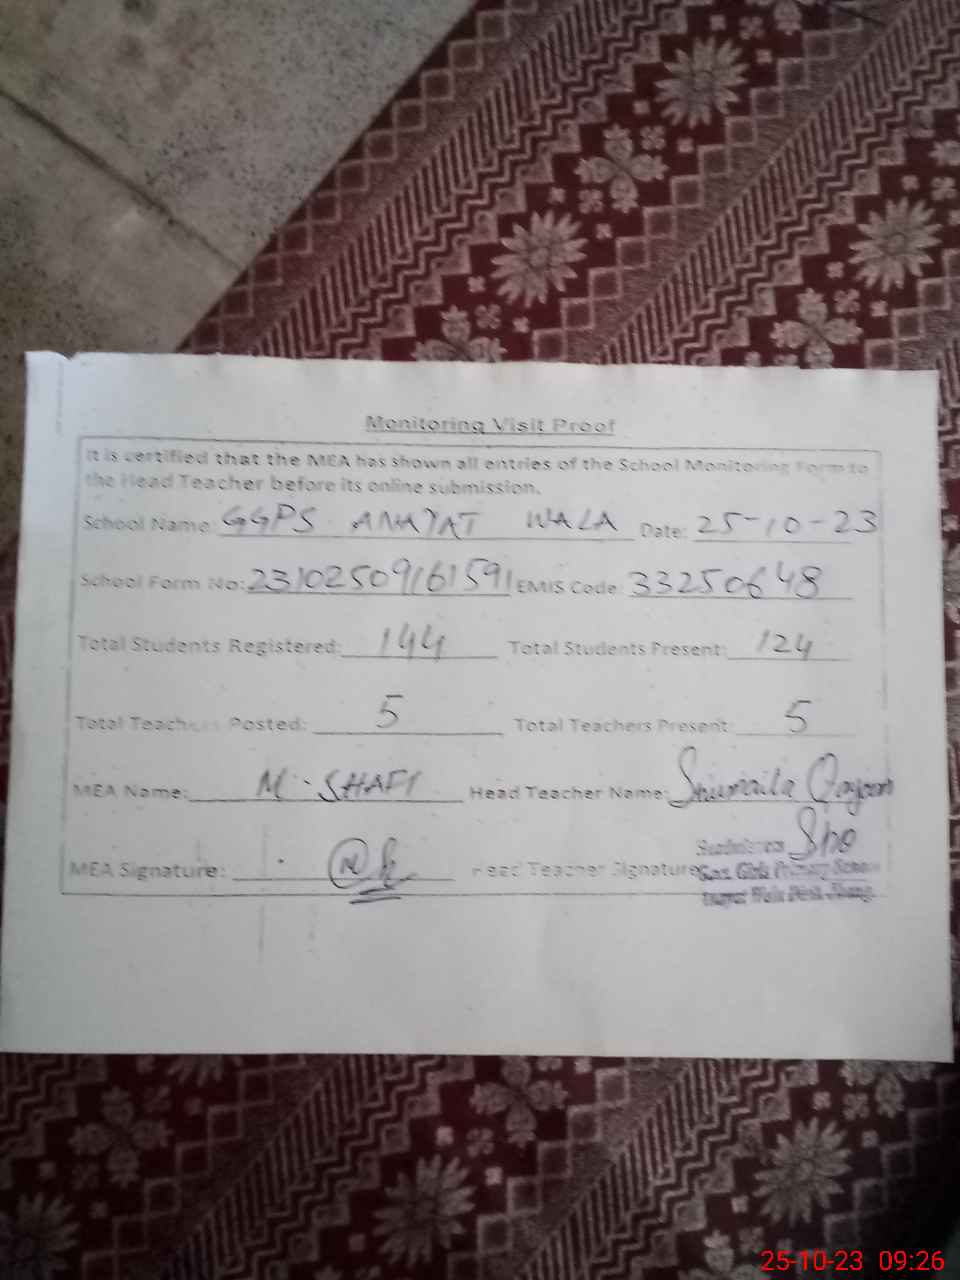 Monitoring Visit Proof
It is certified that the MEA has shown all entries of the School Monitoring Form to
the Head Teacher before its online submission.
School Name: GGPS ANAYAT WALA Date: 25-10-23
School Form No: 23102509161591 EMIS Code: 33250648
Total Students Registered: 144 Total Students Present: 124
Total Teachers Posted: 5 Total Teachers Present: 5
MEA Name: M. SHAFI Head Teacher Name: Shumaila Qayoom
MEA Signature: Head Teacher Signature
Govt. Girls Primary School
Wala Distt. Jhang
25-10-23 09:26